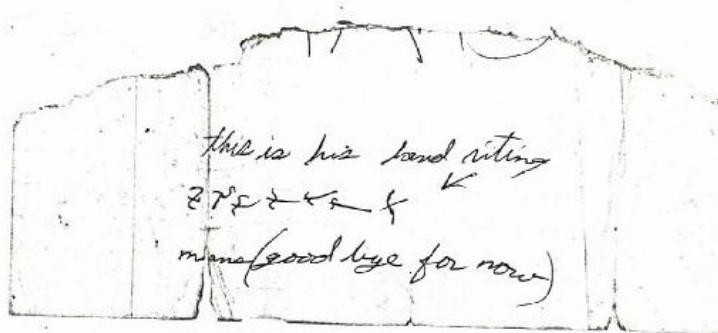 this is his hand riting
means (good bye for now)